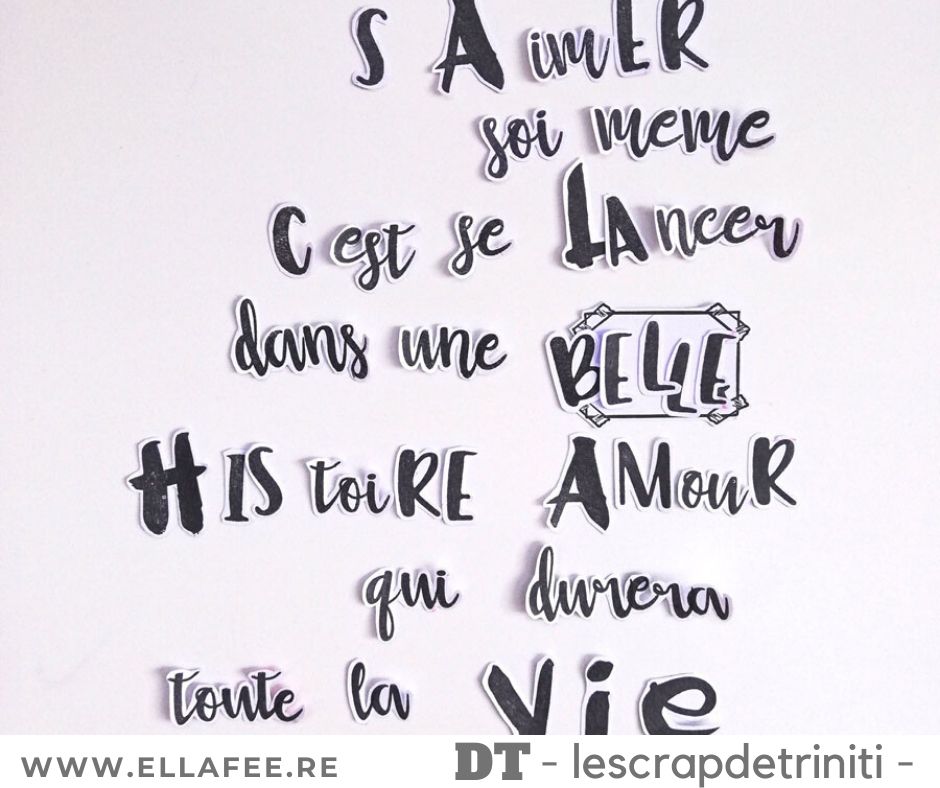 S AimER
soi meme
C est se LAncer
dans une BELLE
HIStoiRE AMouR
qui durera
toute la Vie
WWW.ELLAFEE.RE
DT - lescrapdetriniti -